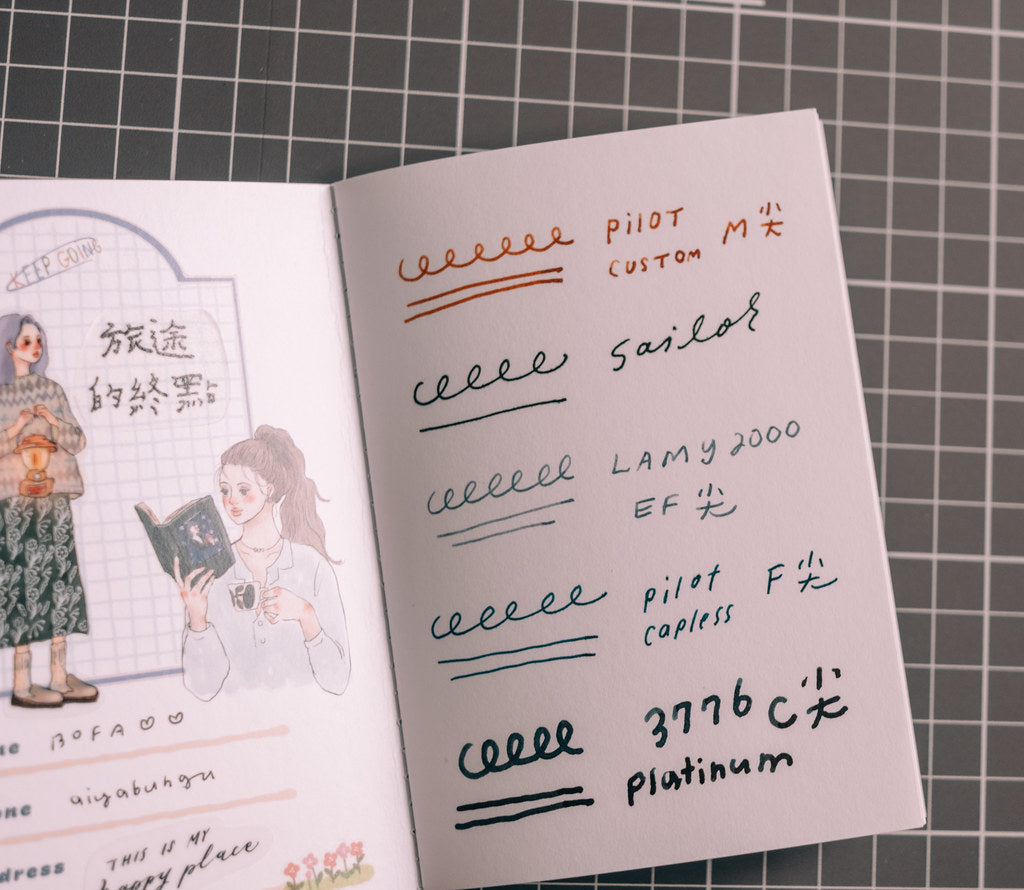 KEEP GOING
旅途
的終點
BOFA
aiyabungu
dress
THIS IS MY
happy place
PILOT
CUSTOM M尖
Sailor
LAMY 2000
EF 尖
pilot
capless F尖
3776 C尖
platinum